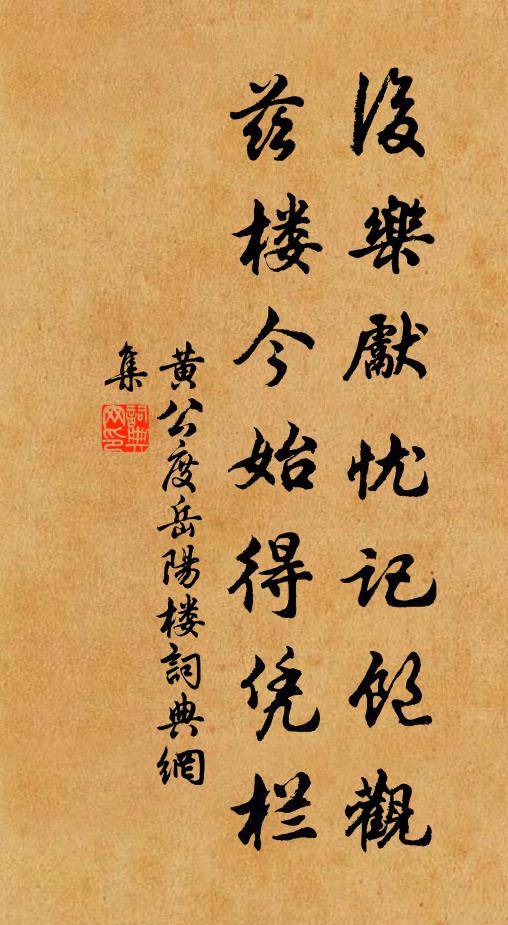 後樂獻忧记饱觀
兹楼今始得凭栏
黄公度岳陽楼詞典網
集
詞典网印